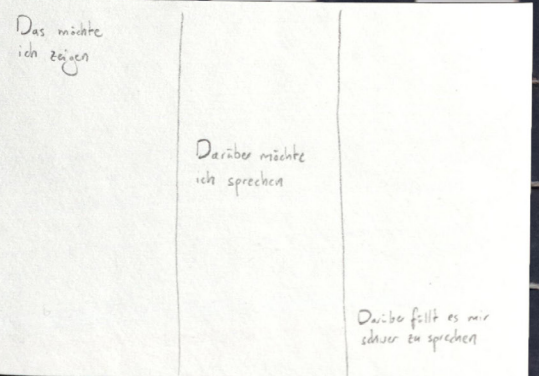 Das möchte
ich zeigen
Darüber möchte
ich sprechen
Darüber fällt es mir
schwer zu sprechen